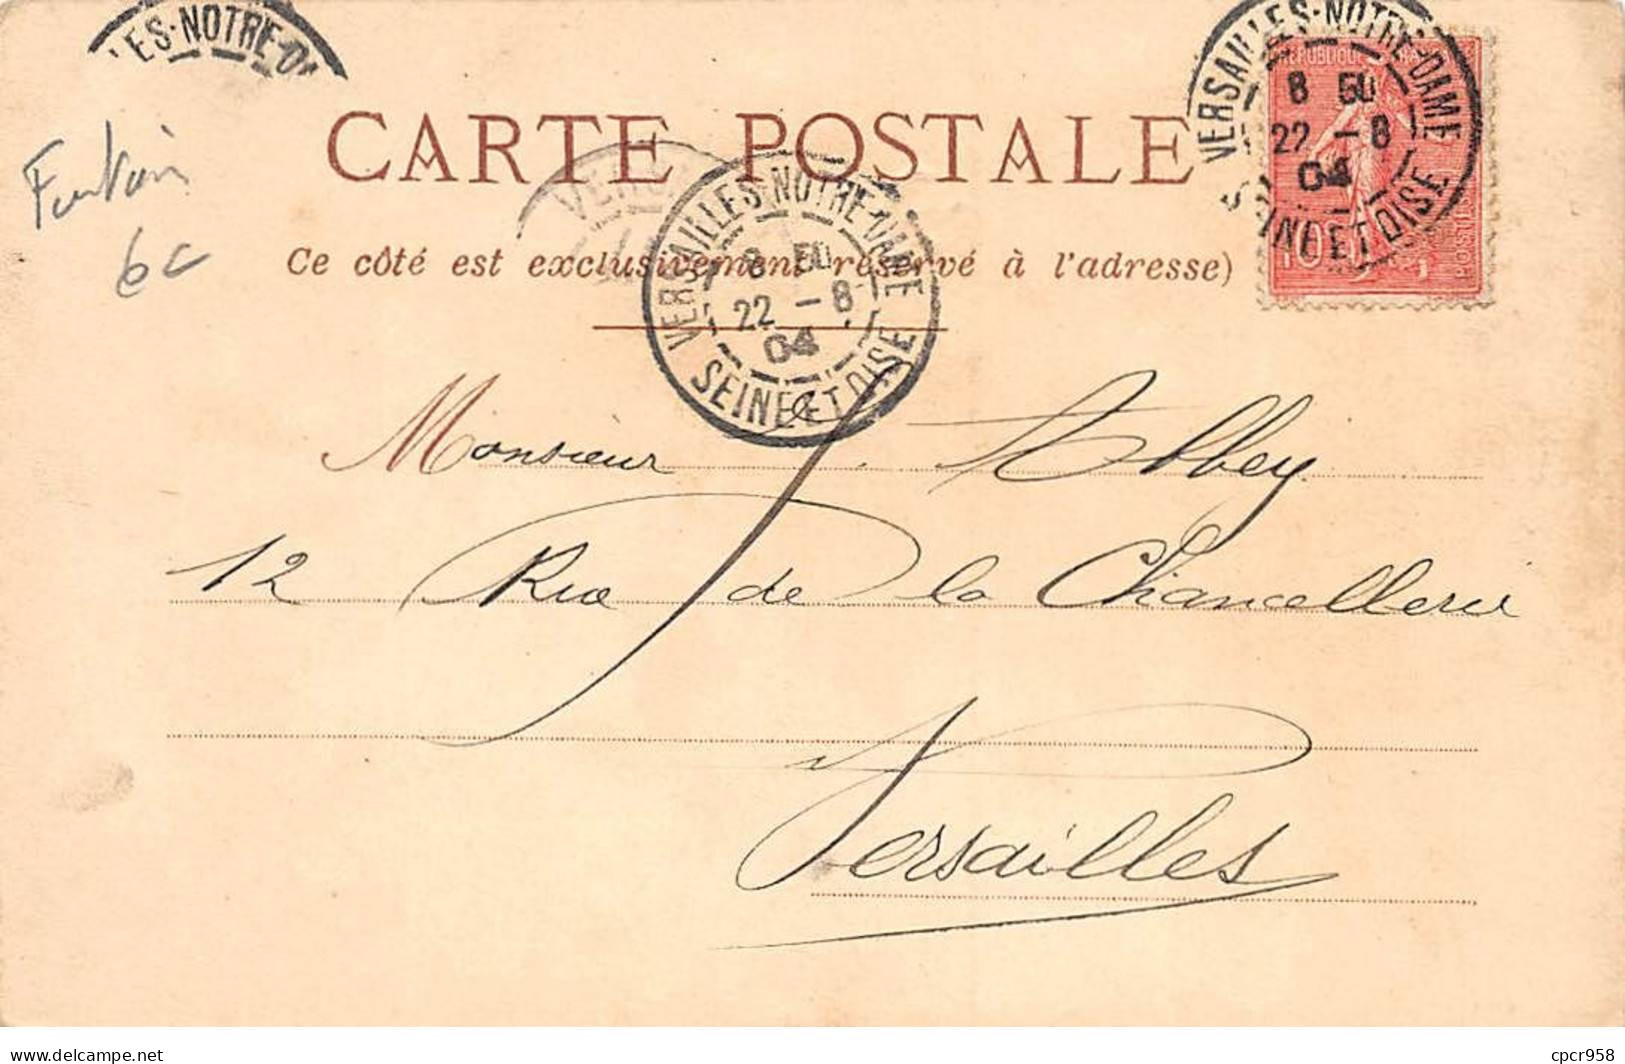 LES-NOTRE-DA
VERSAILLES-NOTRE-DAME
8 50
22 - 8
04
SEINE ET OISE
REPUBLIQUE FRA
10
POSTE
CARTE POSTALE
6c
Ce côté est exclusivement réservé à l'adresse)
VERSAILLES-NOTRE-DAME
8 50
22 - 8
04
SEINE ET OISE
Monsieur Abbey
12 Rue de la Chancellerie
Versailles
delcampe.net
cpcr958